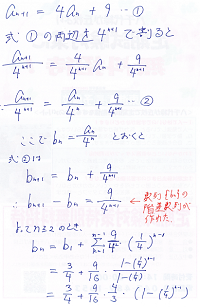 a_{n+1} = 4a_n + 9 … ①
式①の両辺を 4^{n+1} で割ると
a_{n+1}/4^{n+1} = 4/4^{n+1} a_n + 9/4^{n+1}
∴ a_{n+1}/4^{n+1} = a_n/4^n + 9/4^{n+1} … ②
ここで b_n = a_n/4^n とおくと
式②は
b_{n+1} = b_n + 9/4^{n+1}
∴ b_{n+1} - b_n = 9/4^{n+1} ← 数列{b_n}の
階差数列が
作れた.
よって n≧2 のとき.
b_n = b_1 + Σ_{k=1}^{n-1} 9/4^2 · (1/4)^{k-1}
= 3/4 + 9/16 · (1-(1/4)^{n-1})/(1-(1/4))
= 3/4 + 9/16 · 4/3 · (1-(1/4)^{n-1})